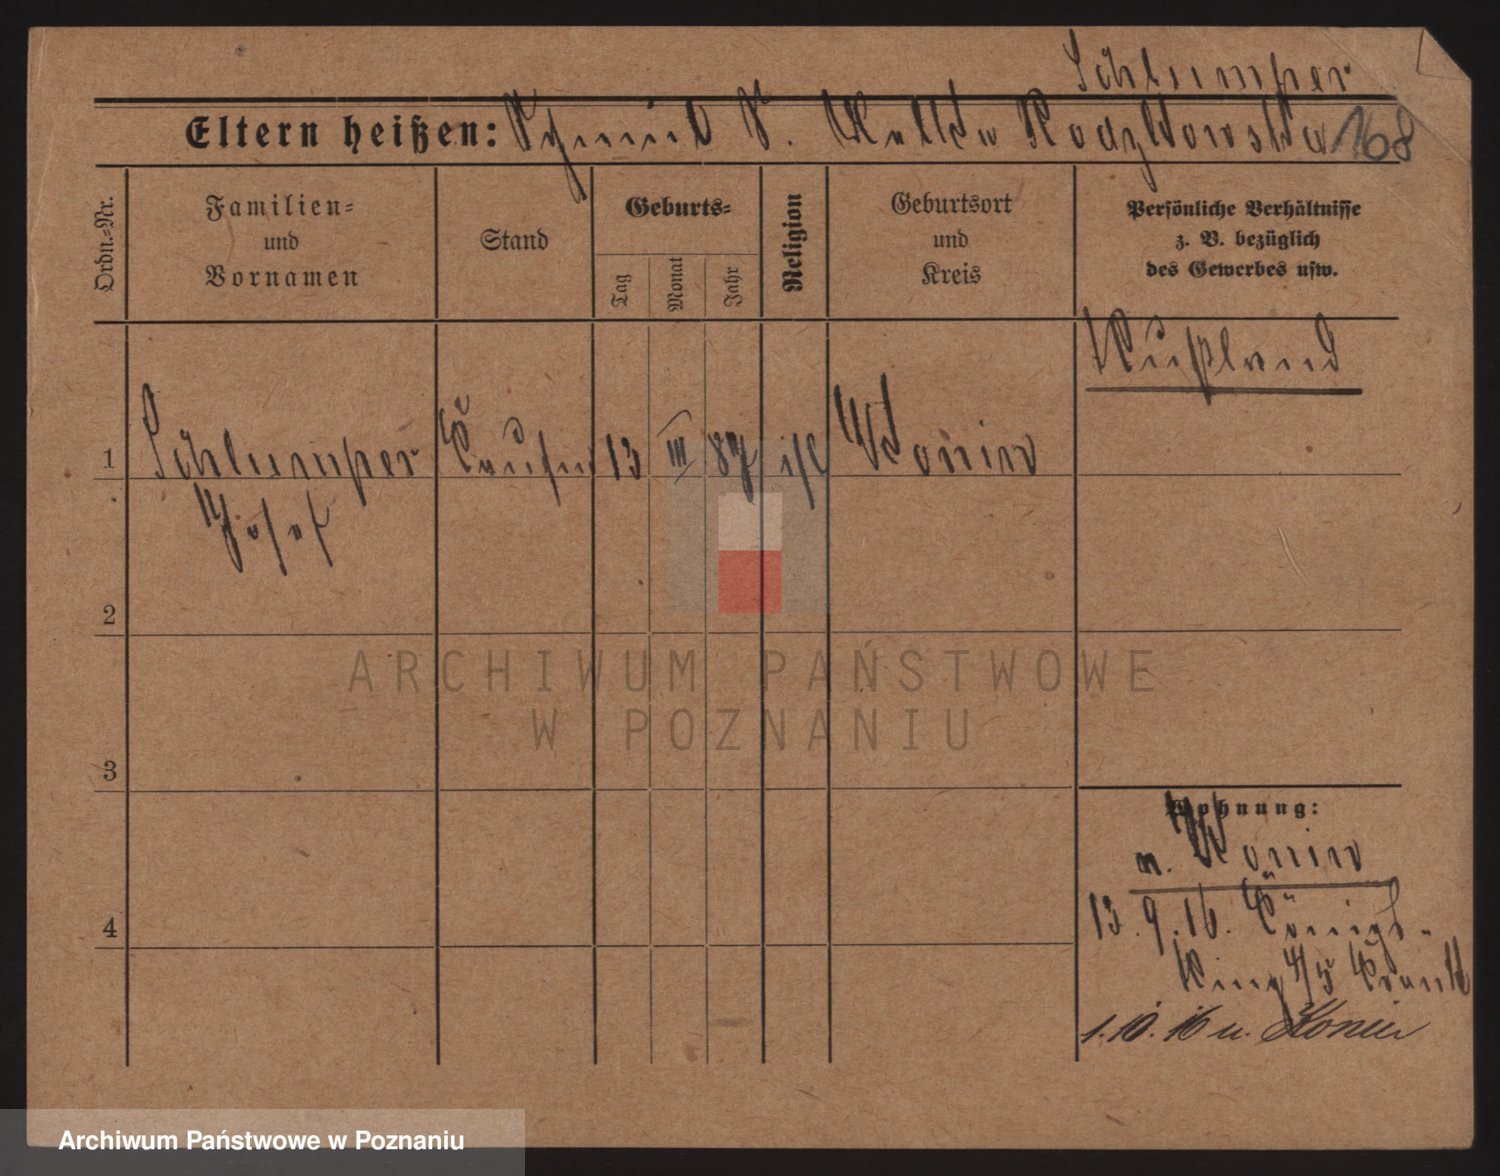 Schlumper
Eltern heißen: Schmul u. Malka Koczkowska 168
Ordn.-Nr.
Familien-
und
Vornamen
Stand
Geburts-
Tag
Monat
Jahr
Religion
Geburtsort
und
Kreis
Persönliche Verhältnisse
z. B. bezüglich
des Gewerbes usw.
Rußland
1 Schlumper Kaufm 13 III 87 isr Konin
Josef
2
ARCHIWUM PAŃSTWOWE
W POZNANIU
3
Wohnung:
n. Konin
4
13.9.16. Königs-
Ring 4/5 Krank
1.10.16 n. Konin
Archiwum Państwowe w Poznaniu